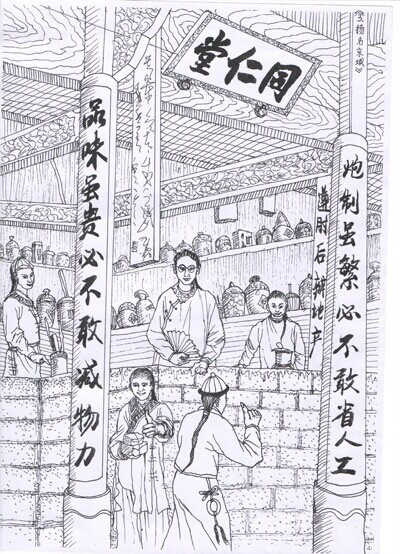 《扬名京城》
同仁堂
炮制虽繁必不敢省人工
遵肘后辨地产
品味虽贵必不敢减物力